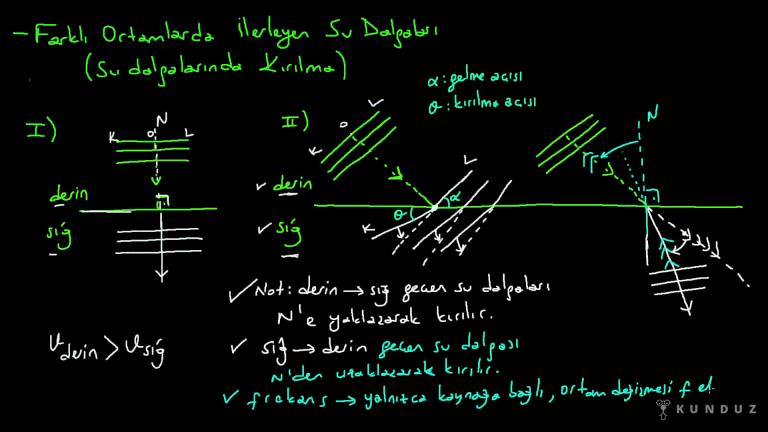 - Farklı Ortamlarda İlerleyen Su Dalgaları
(Su dalgalarında Kırılma)
α: gelme açısı
θ: kırılma açısı
I)
N
K O L
derin
sığ
II)
K O L
derin
sığ
θ α
K L
N
✓ Not: derin → sığ geçen su dalgaları
N'e yaklaşarak kırılır.
V derin > V sığ
✓ sığ → derin geçen su dalgası
N'den uzaklaşarak kırılır.
✓ frekans → yalnızca kaynağa bağlı, ortam değişmesi f et
KUNDUZ